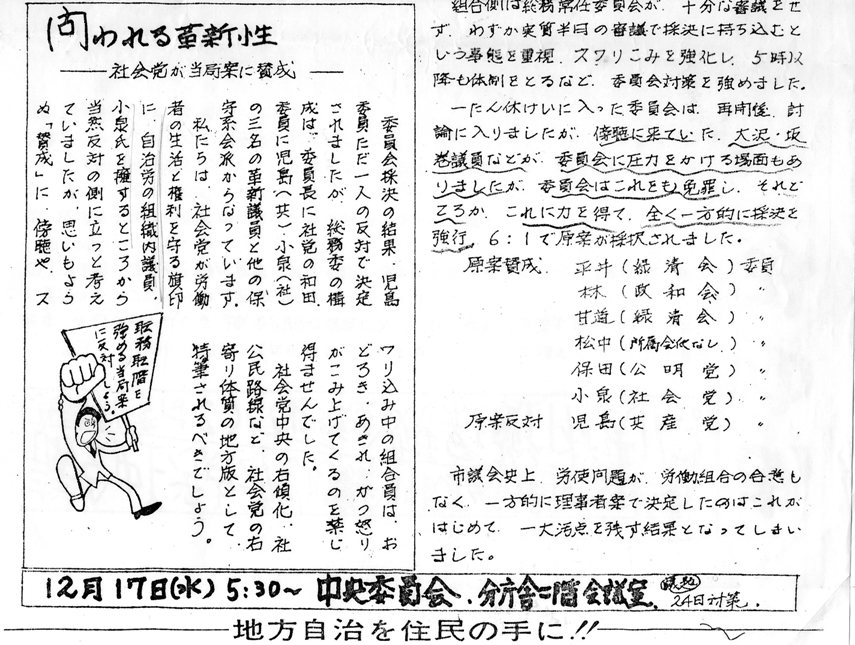 問われる革新性
社会党が当局案に賛成
委員会採決の結果、児島
委員ただ一人の反対で決定
されましたが、総務委の構
成は、委員長に社党の和田、
委員に児島(共)、小泉(社)
の三名の革新議員と他の保
守系会派からなっています。
私たちは、社会党が労働
者の生活と権利を守る旗印
に、自治労の組織内議員、
小泉氏を擁するところから
当然反対の側に立つと考え
ていましたが、思いもよら
ぬ「賛成」に、傍聴や、ス
ワリ込み中の組合員は、お
どろき、あきれ、かつ怒り
がこみ上げてくるのを禁じ
得ませんでした。
社会党中央の右傾化、社
公民路線など、社会党の右
寄り体質の地方版として、
特筆されるべきでしょう。
職務職階を
強める当局案
に反対しよう。
組合側は総務常任委員会が、十分な審議をせ
ず、わずか実質半日の審議で採決に持ち込むと
いう事態を重視、スワリこみを強化し、5時以
降も体制をとるなど、委員会対策を強めました。
一たん休けいに入った委員会は、再開後、討
論に入りましたが、傍聴に来ていた、大沢・坂
巻議員などが、委員会に圧力をかける場面もあ
りましたが、委員会はこれをも免罪し、それど
ころか、これに力を得て、全く一方的に採決を
強行、6:1で原案が採択されました。
原案賛成 平井(緑清会)委員
林(政和会)〃
甘道(緑清会)〃
松中(所属会派なし)〃
保田(公明党)〃
小泉(社会党)〃
原案反対 児島(共産党)〃
市議会史上、労使問題が、労働組合の合意も
なく、一方的に理事者案で決定したのはこれが
はじめて、一大汚点を残す結果となってしまい
ました。
12月17日(水)5:30~ 中央委員会、分庁舎二階会議室、議題 24日対策.
地方自治を住民の手に!!